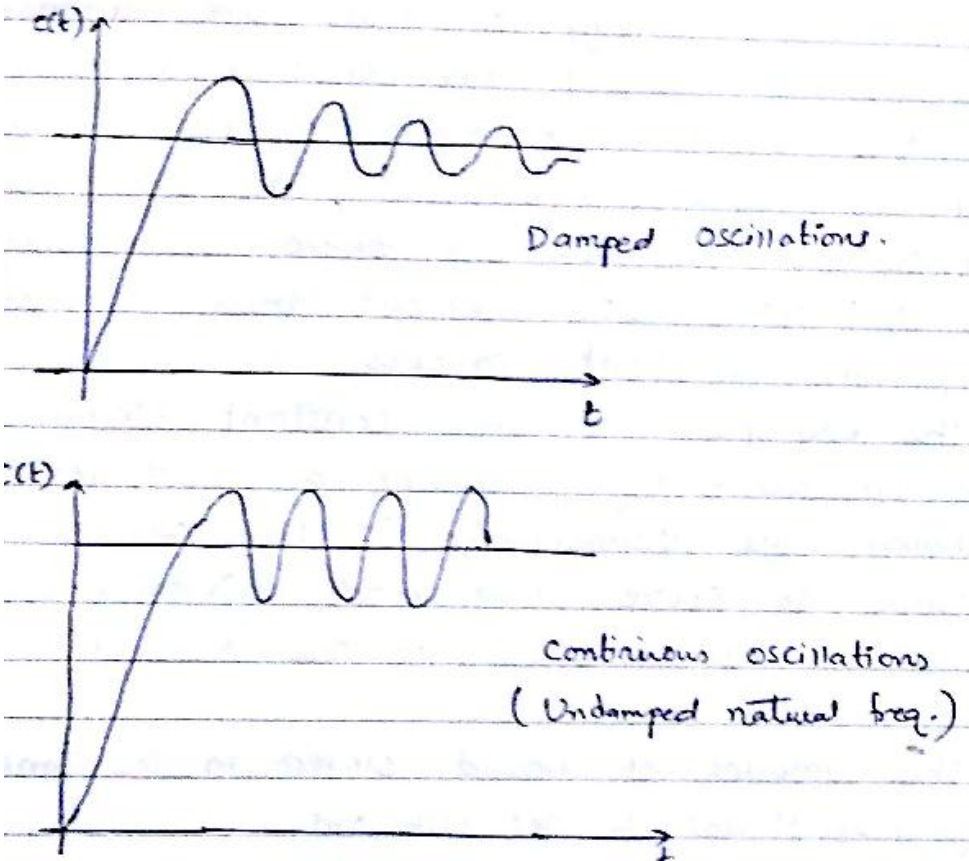 c(t)
Damped oscillations.
t
c(t)
Continuous oscillations
(Undamped natural freq.)
t